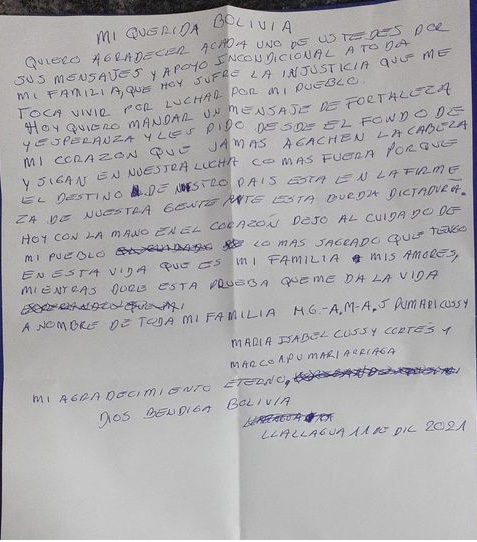 MI QUERIDA BOLIVIA
QUIERO AGRADECER ACADA UNO DE USTEDES POR
SUS MENSAJES Y APOYO INCONDICIONAL A TODA
MI FAMILIA, QUE HOY SUFRE LA INJUSTICIA QUE ME
TOCA VIVIR POR LUCHAR POR MI PUEBLO.
HOY QUIERO MANDAR UN MENSAJE DE FORTALEZA
Y ESPERANZA Y LES PIDO DESDE EL FONDO DE
MI CORAZON QUE JAMAS AGACHEN LA CABEZA
Y SIGAN EN NUESTRA LUCHA CO MAS FUERA PORQUE
EL DESTINO DE NUESTRO PAIS ESTA EN LA FIRME
ZA DE NUESTRA GENTE ANTE ESTA BURDA DICTADURA.
HOY CON LA MANO EN EL CORAZÓN DEJO AL CUIDADO DE
MI PUEBLO LO MAS SAGRADO QUE TENGO
EN ESTA VIDA QUE ES MI FAMILIA MIS AMORES,
MIENTRAS DURE ESTA PRUEBA QUE ME DA LA VIDA
A NOMBRE DE TODA MI FAMILIA M.G.-A.M-A.J PUMARI CUSSY
MARIA ISABEL CUSSY CORTES Y
MARCO A. PUMARI ARRIAGA
MI AGRADECIMIENTO ETERNO.
DIOS BENDIGA BOLIVIA
LLALLAGUA 11 DE DIC 2021